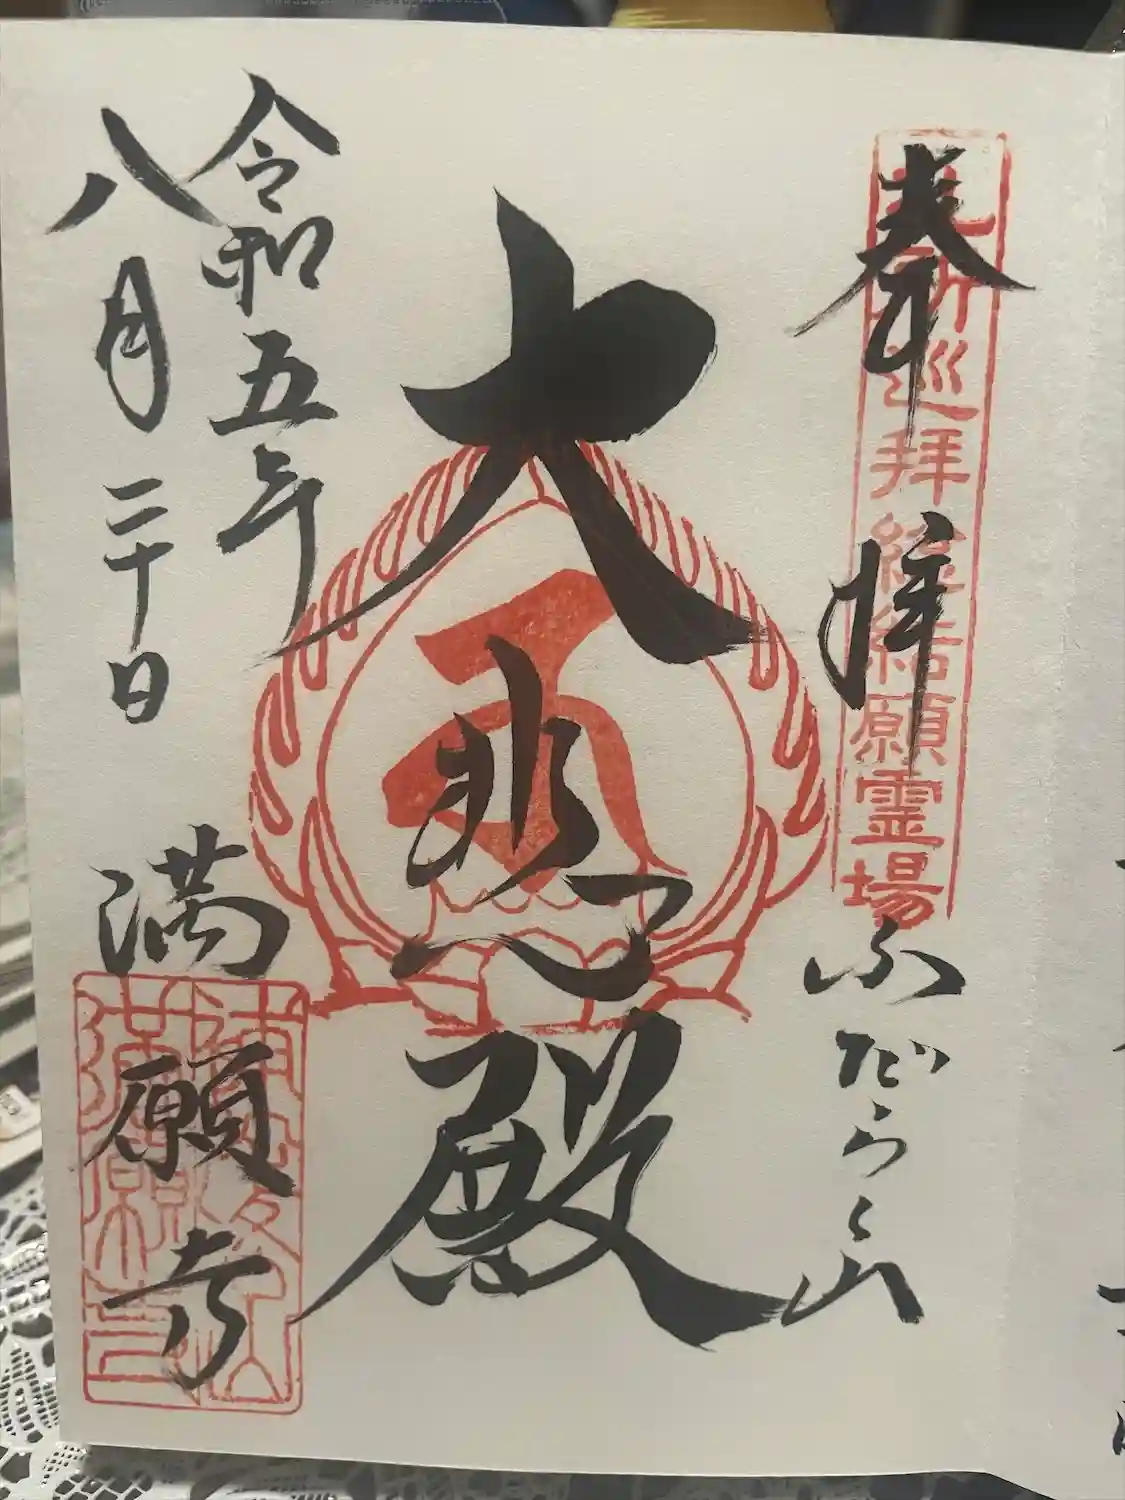 奉拝
ふだらく山
巡拝總結願霊場
大悲殿
令和五年
八月二十日
満願寺